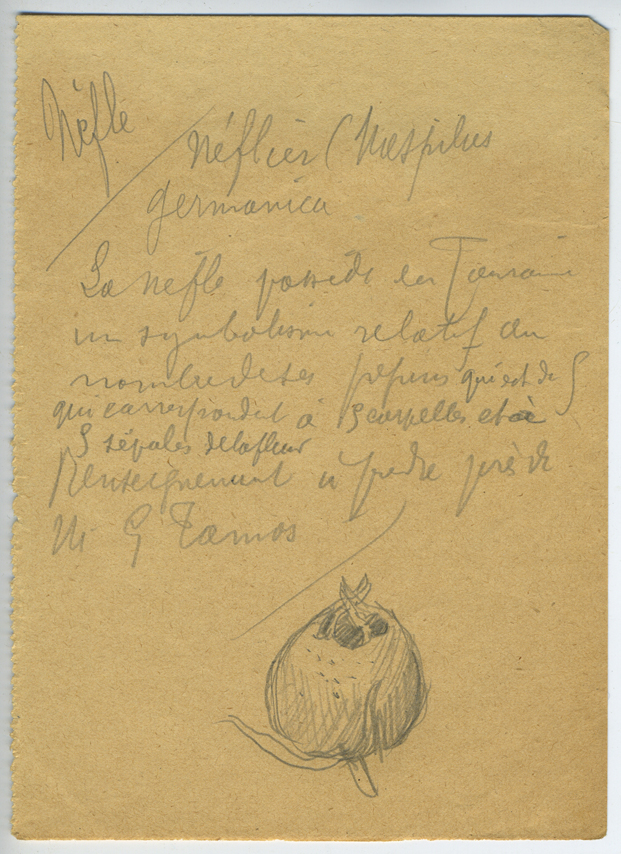 Nèfle
Néflier (Mespilus
germanica
La nèfle possède en Touraine
un symbolisme relatif au
nombre de ses pépins qui est de 5
qui correspondent à 5 carpelles et à
5 sépales de la fleur
Renseignement à prendre près de
M G